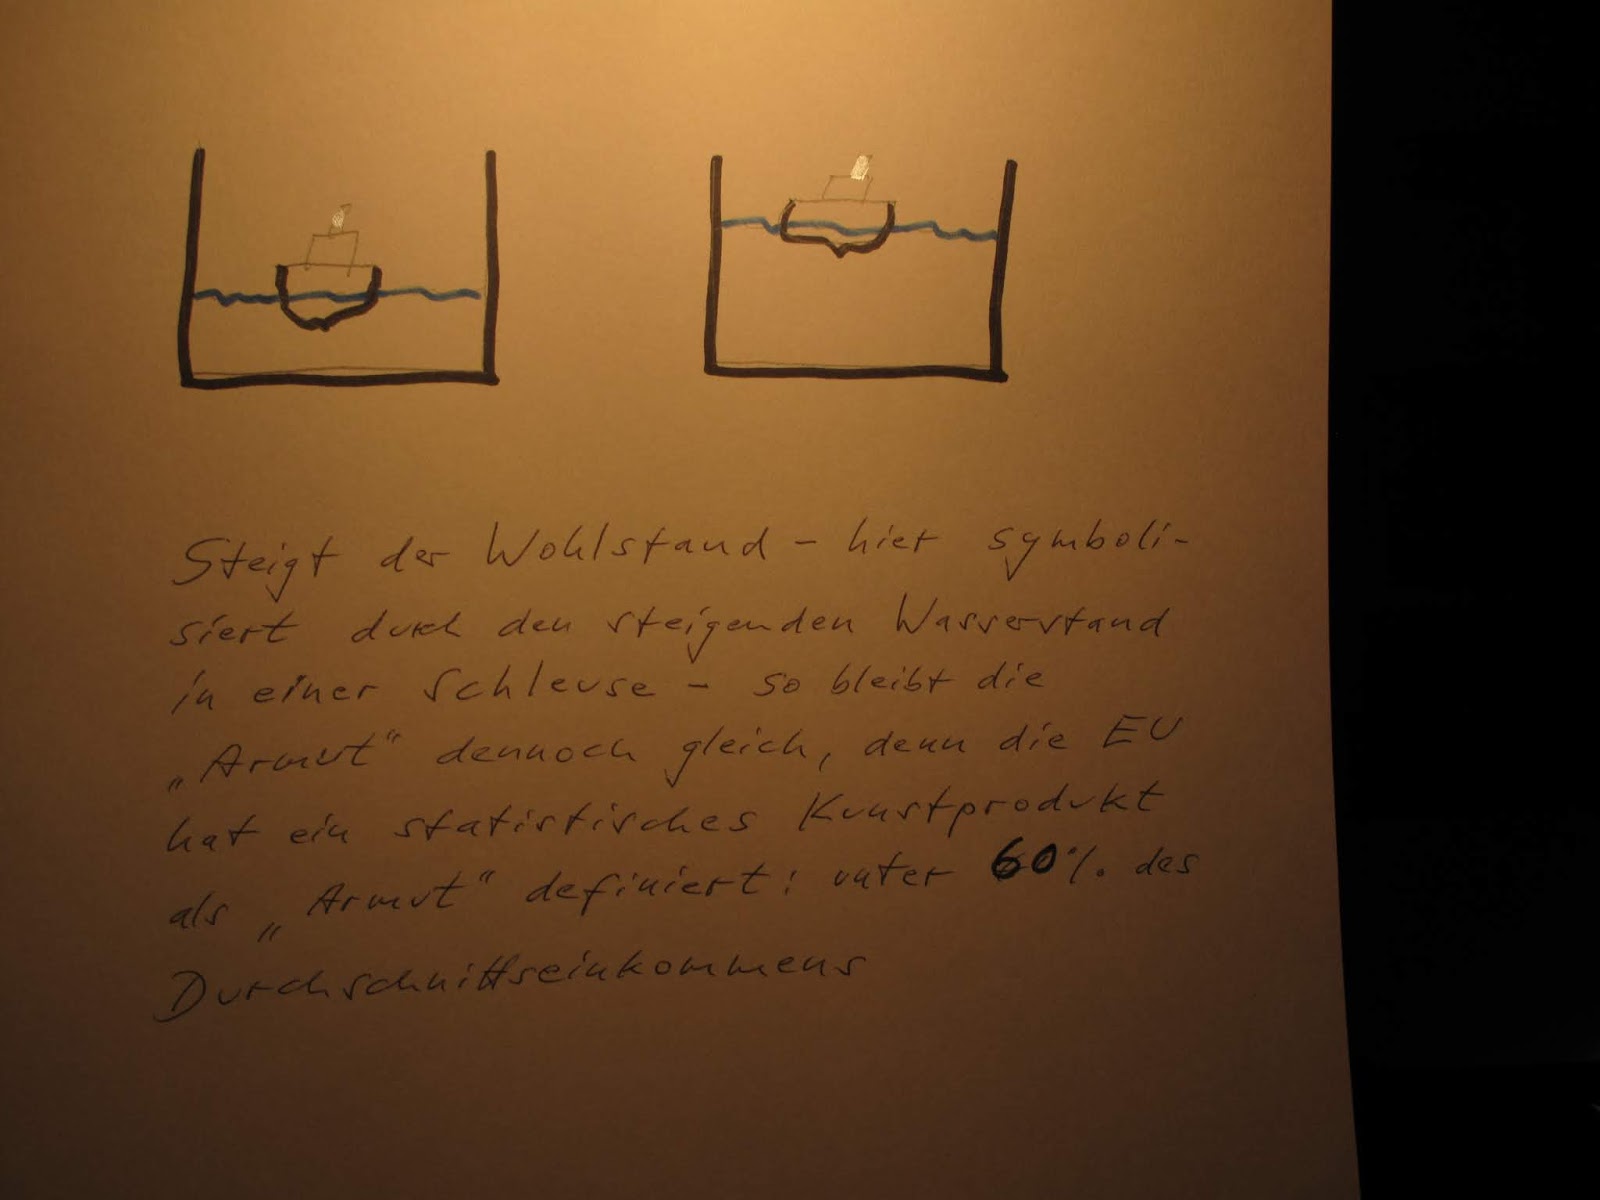 Steigt der Wohlstand - hier symboli-
siert durch den steigenden Wasserstand
in einer Schleuse - so bleibt die
„Armut" dennoch gleich, denn die EU
hat ein statistisches Kunstprodukt
als „Armut" definiert: unter 60%. des
Durchschnittseinkommens